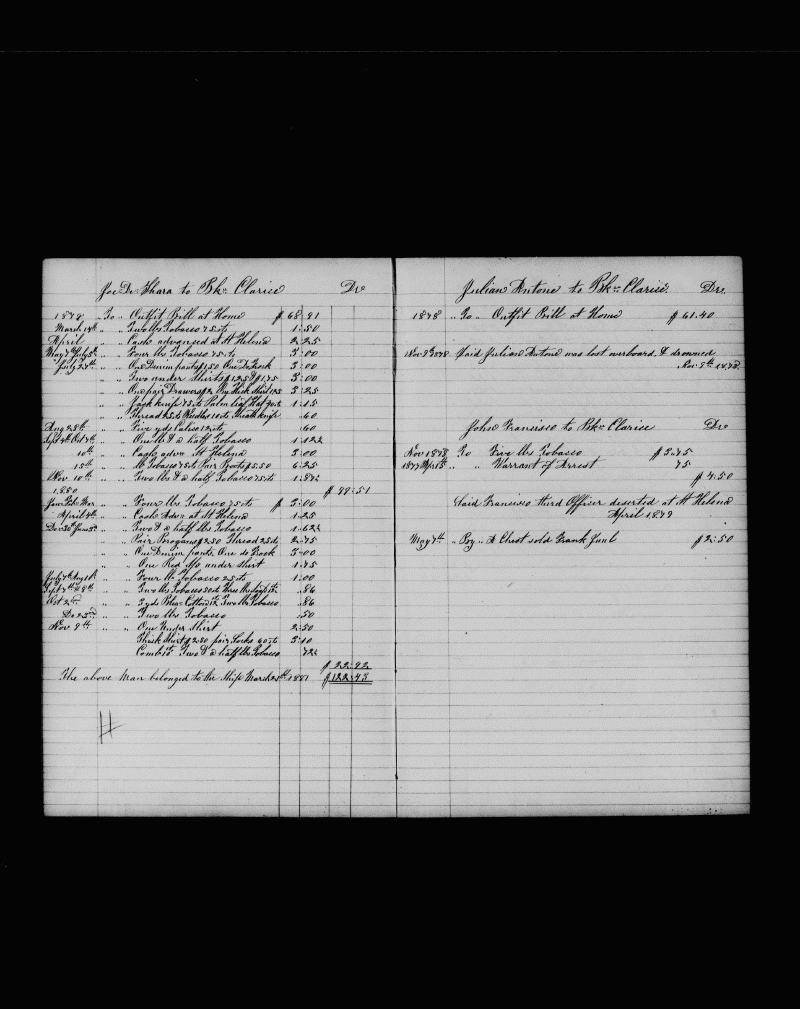 Joe De Shara to Bkn Clarice Dr
1878 To " Outfit Bill at Home $ 68.91
March 14th " " Two lbs Tobacco 75cts 1.50
April " " Cash advanced at St Helena 2.25
May 7th July 5th " " Four lbs Tobacco 75cts 3.00
July 27th " " One Denim pants $1.50 One Do Frock 3.00
" " Two under Shirts $1.25 $1.75 3.00
" " One pair Drawers $2 Hick Shirt 1.25 3.25
" " Jack knife 75cts Palm leaf Hat 40cts 1.15
" " Thread 25cts Needles 10cts Sheath knife .60
Aug 28th " " Five yds Calico 12cts .60
Sept 4th Oct 7th " " One lb & a half Tobacco 1.12½
10th " " Cash adva St Helena 3.00
15th " " lb Tobacco 75cts Pair Boots $5.50 6.25
Nov 10th " " Two lbs & a half Tobacco 75cts 1.87½
$ 99.51
1880
Jan Feb Mar " " Four lbs Tobacco 75cts $ 3.00
April 4th " " Cash Adva at St Helena 1.25
Dec 30th June 3d " " Two & a half lbs Tobacco 1.62½
" " Pair Brogans $2.50 Thread 25cts 2.75
" " One Denim pants, One do Frock 3.00
" " One Red under shirt 1.75
July 7th Aug 1st " " Four lbs Tobacco 25cts 1.00
Sept 7th & 8th " " Two lbs Tobacco 50cts Three lbs Soap .86
Oct 2nd " " 3 yds Blue Cotton Two lbs Tobacco .86
Dec 23rd " " Two lbs Tobacco .50
Nov 9th " " One Under Shirt 2.50
Thick Shirt $2.50 pair Socks 60cts 3.10
Comb 10 Two & a half lbs Tobacco 72½
$ 22.92
The above Man belonged to the Ship March 25th 1881 $122.43
Julian Antone to Bkn Clarice Dr.
1878 " To " Outfit Bill at Home $ 61.40
Nov 9th 1878 Said Julian Antone was lost overboard & drowned
Nov 9th 1878
John Francisco to Bkn Clarice Dr
Nov 1878 To Five lbs Tobacco $ 3.75
1879 Apl 15th " " Warrant of Arrest 75
$ 4.50
Said Francisco third Officer deserted at St Helena
April 1879
May 7th " By " A Chest sold Frank $ 2.50